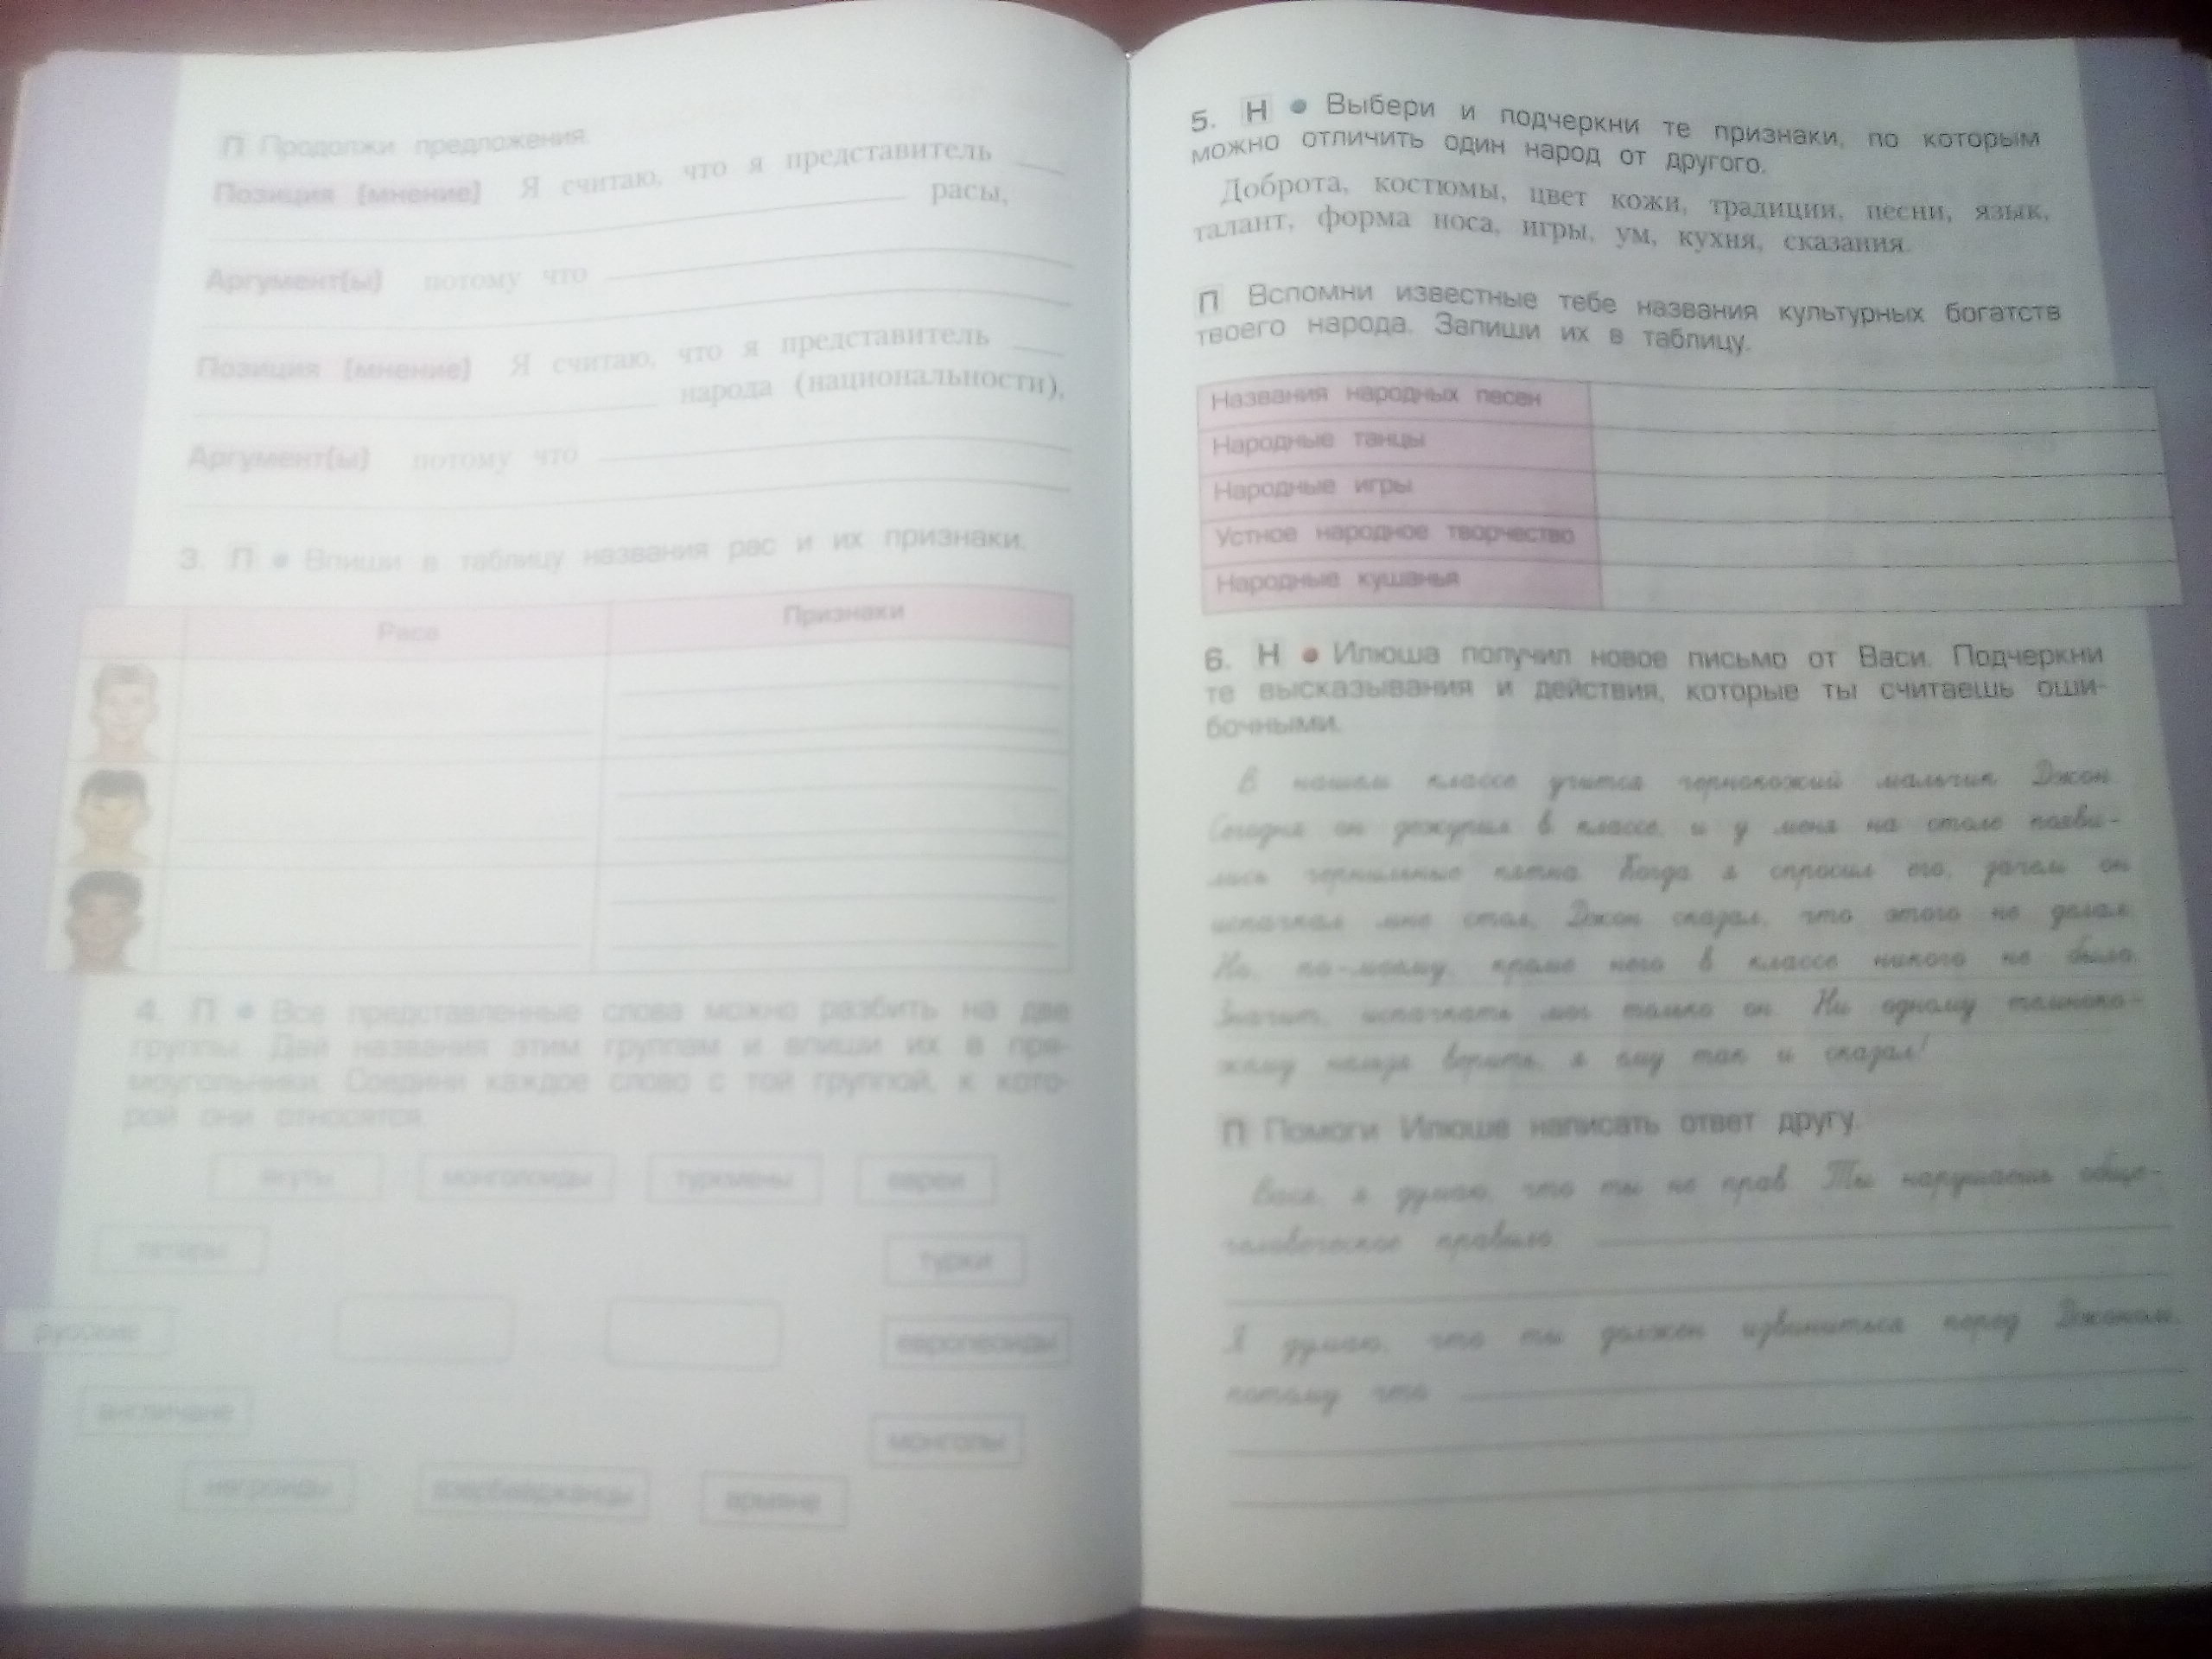 П Продолжи предложения.
Позиция (мнение) Я считаю, что я представитель
расы,
Аргумент(ы) потому что
Позиция (мнение) Я считаю, что я представитель
народа (национальности),
Аргумент(ы) потому что
3. П • Впиши в таблицу названия рас и их признаки.
Раса Признаки
4. П • Все представленные слова можно разбить на две
группы. Дай названия этим группам и впиши их в пря-
моугольники. Соедини каждое слово с той группой, к кото-
рой они относятся.
якуты монголоиды туркмены евреи
татары турки
русские европеоиды
англичане монголы
негроиды азербайджанцы
5. Н • Выбери и подчеркни те признаки, по которым
можно отличить один народ от другого.
Доброта, костюмы, цвет кожи, традиции, песни, язык,
талант, форма носа, игры, ум, кухня, сказания.
П Вспомни известные тебе названия культурных богатств
твоего народа. Запиши их в таблицу.
Названия народных песен
Народные танцы
Народные игры
Устное народное творчество
Народные кушанья
6. Н • Илюша получил новое письмо от Васи. Подчеркни
те высказывания и действия, которые ты считаешь оши-
бочными.
В нашем классе учится чернокожий мальчик Джон.
Сегодня он дежурил в классе, и у меня на столе появи-
лись чернильные пятна. Когда я спросил его, зачем он
испачкал мне стол, Джон сказал, что этого не делал.
Но, по-моему, кроме него в классе никого не было.
Значит, испачкать мог только он. Ни одному темноко-
жему нельзя верить, я ему так и сказал!
П Помоги Илюше написать ответ другу.
Вася, я думаю, что ты не прав. Ты нарушаешь обще-
человеческое правило
Я думаю, что ты должен извиниться перед Джоном,
потому что